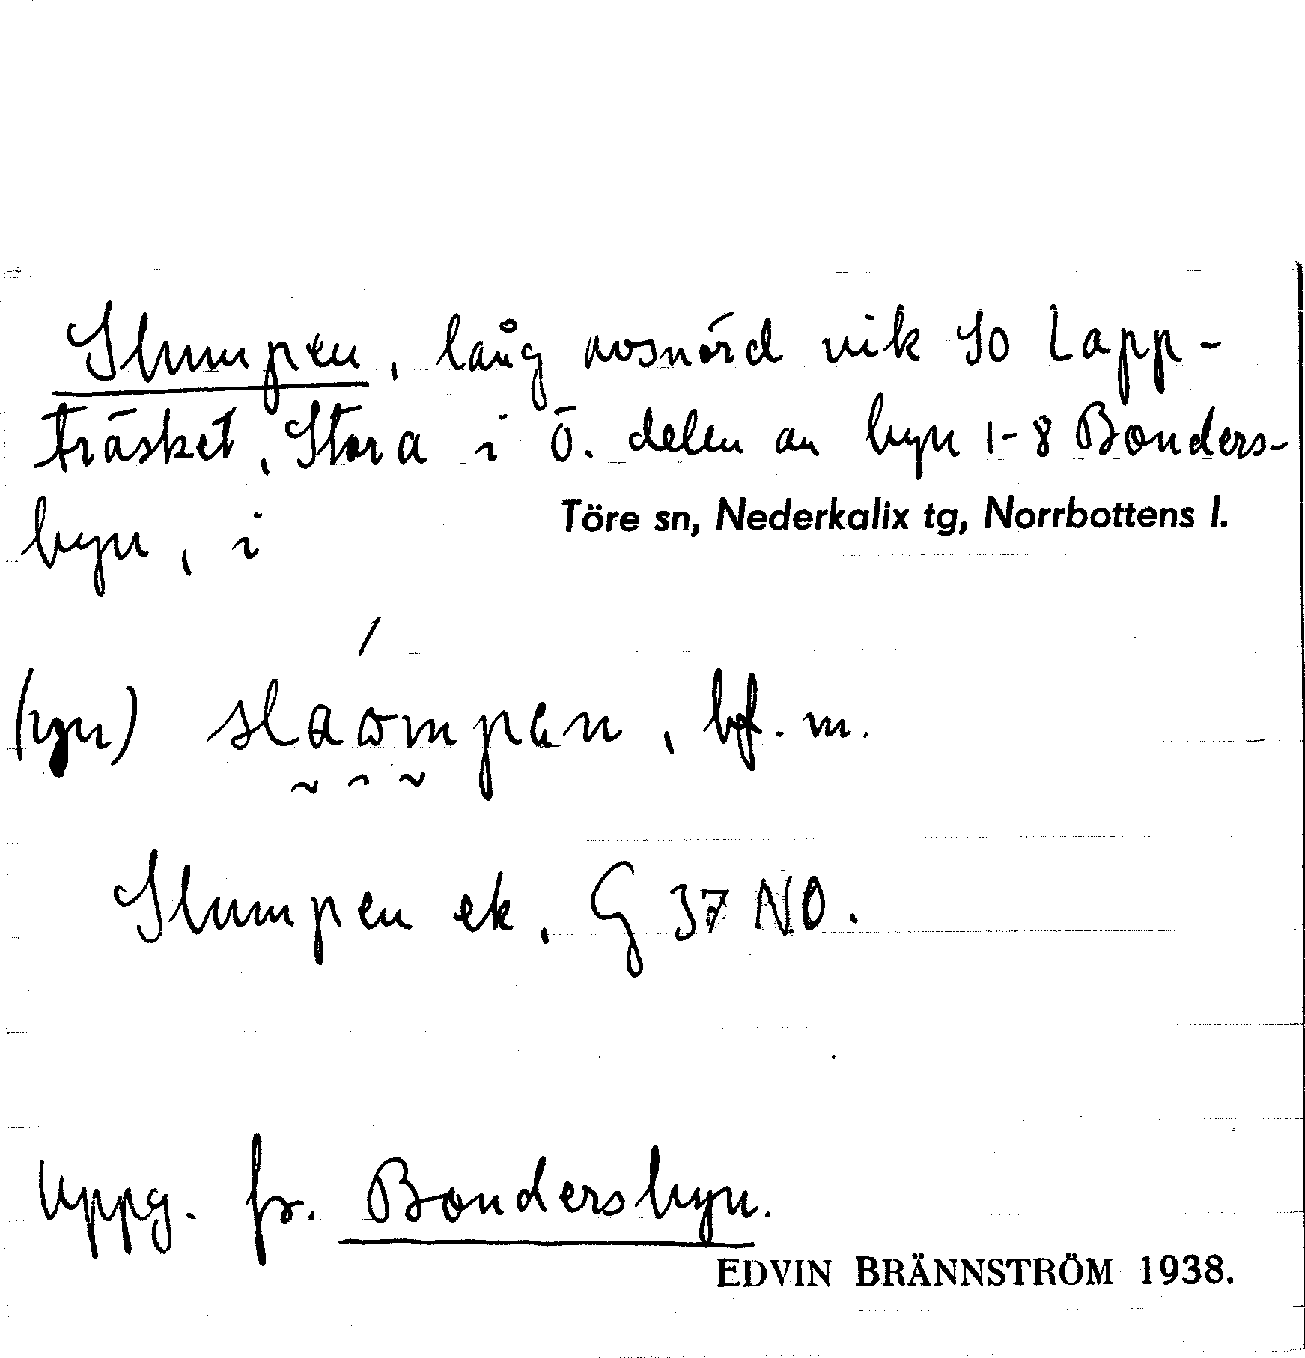 Slumpen, lång avsnörd vik SO Lapp-
träsket, Stora i Ö. delen av byn 1-8 Bonders-
byn, i Töre sn, Nederkalix tg, Norrbottens l.
(yn) slaompen, bf. m.
Slumpen ek. G 37 NO.
Uppg. fr. Bondersbyn.
EDVIN BRÄNNSTRÖM 1938.